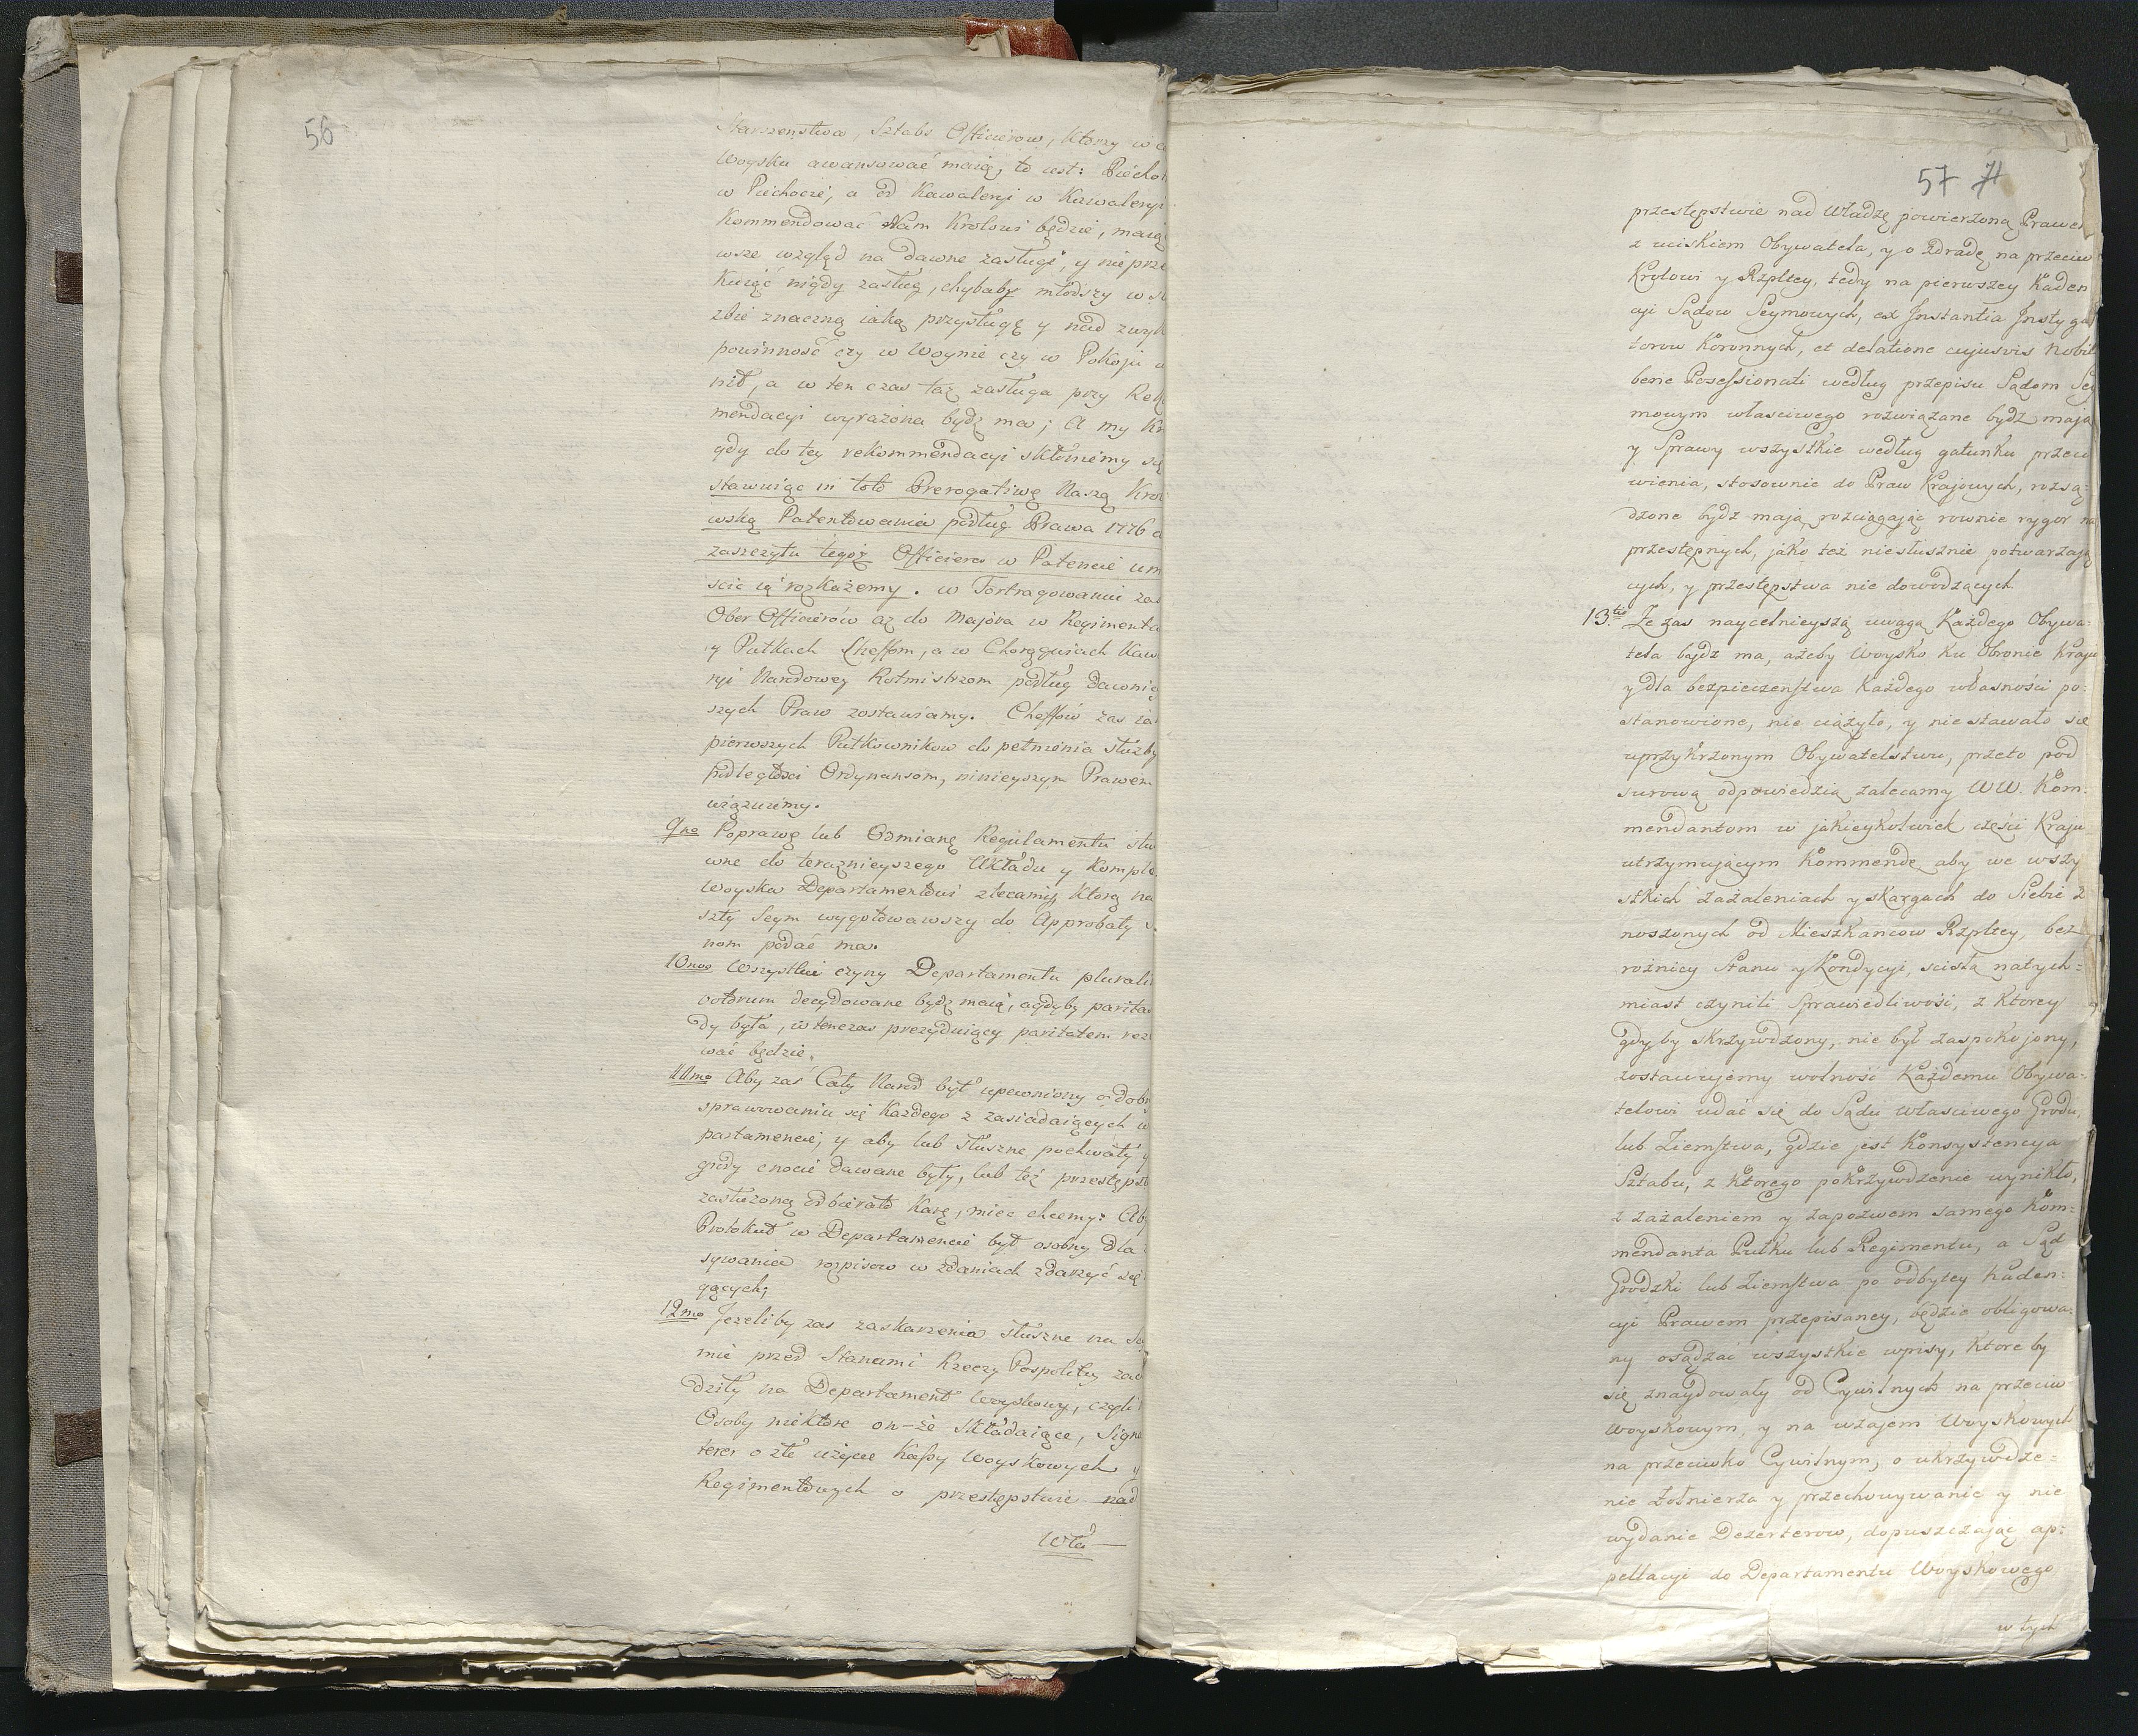 56
Starszenstwa, Sztabs Officierow, Ktorzy w
Woysku awansować maią, to iest: Piecho
w Piechocie, a od Kawaleryi w Kawaleryi
Kommendować Nam Krolowi będzie, maią
wsze wzgląd na dawne zasługi, y nie prze
kuiąć nigdy zasług, chybaby młodszy w
zbie znaczną iaką przysługę y nad zwyk
powinność czy w Woynie czy w Pokoju u
nił, a w ten czas taż zasługa przy Rek
mendacyi wyrażona bydź ma; A my Kr
gdy do tey rekommendacyi skłonimy się
stawuiąc in toto Prerogatiwę Naszą Krol
wską Patentowania podług Prawa 1776
zaszczytu tegoż Officiera w Patencie um
ścić ią rozkażemy. w Fortragowaniu zaś
Ober Officierów aż do Majora w Regimenta
y Pułkach Cheffom, a w Chorągwiach Kaw
ryi Narodowey Rotmistrzom podług dawniey
szych Praw zostawiamy. Cheffów zaś ia
pierwszych Pułkowników do pełnienia służby
podległości Ordynansom, ninieyszym Prawem
wiązuiemy.
9no Poprawę lub Odmianę Regulamentu sto
wne do teraznieyszego Układu y Komple
Woyska Departamentowi zlecamy, Ktorą na
szły Seym wygotowawszy do Approbaty S
nom podać ma.
10mo Wszystkie czyny Departamentu plurali
votorum decydowane bydź maią, agdyby parita
dy była, w tenczas prezyduiący paritatem rez
wać będzie.
11mo Aby zaś Cały Narod był upewniony o dobr
sprawowaniu się Każdego z zasiadaiących w
partamencie, y aby lub słuszne pochwały y
grody cnocie dawane były, lub też przestęps
zasłużoną odbierało Karę, mieć chcemy: Ab
Protokuł w Departamencie był osobny dla
sywania rozpisow w zdaniach zdarzyć się
gących;
12mo Jezeliby zas zaskarzenia słuszne na Sey
mie przed Stanami Rzeczy Pospolitey zac
dziły na Departament Woyskowy, czyli
Osoby niektóre on-że składaiące, Signa
ter o złe użycie Kassy Woyskowych y
Regimentowych o przestępstwie nad
Wła—
57 71
przestępstwie nad Władzę powierzoną Prawem
z uciskiem Obywatela, y o Zdradę na przeciw
Krolowi y Rzpltey, tedy na pierwszey Kaden
cyi Sądow Seymowych, ex Instantia Instyga
torow Koronnych, et delatione cujusvis Nobil
bene Possessionati według przepisu Sądom Sey
mowym właściwego rozwiązane bydź mają
y Sprawy wszystkie według gatunku przeui
wienia, stosownie do Praw Krajowych, rozsą:
dzone bydź mają rozciągając rownie rygor na
przestępnych, jako też niesłusznie potwarzają
cych, y przestępstwa nie dowodzących
13tio Ze zas naycelnieyszą uwagą Każdego Obywa:
tela bydź ma, ażeby Woysko ku Obronie Kraju
y dla bezpieczenstwa Każdego własności po:
stanowione, nie ciążyło, y nie stawało się
uprzykrzonym Obywatelstwu, przeto pod
surową odpowiedzią zalecamy WW. Kom:
mendantom w jakieykolwiek części Kraju
utrzymującym Kommendę, aby we wszy
stkich zażaleniach y skargach do Siebie z
noszonych od Mieszkancow Rzpltey, bez
rożnicy Stanu y Kondycyi, scisłą natych=
miast czynili Sprawiedliwość, z Ktorey
gdyby skrzywdzony, nie był zaspokojony,
zostawujemy wolność Każdemu Obywa:
telowi udać się do Sądu właściwego Grodu,
lub Ziemstwa, gdzie jest Konsystencya
Sztabu, z Ktorego pokrzywdzenie wynikło,
z zażaleniem y zapozwem samego Kom:
mendanta Pułku lub Regimentu, a Sąd
Grodzki lub Ziemstwa po odbytey Kaden:
cyi Prawem przepisaney, będzie obligowa:
ny osądzać wszystkie wpisy, Ktore by
się znaydowały od Cywilnych na przeciw
Woyskowym, y na wzajem Woyskowych
na przeciwko Cywilnym, o ukrzywdze=
nie Żołnierza y przechowywanie y nie
wydanie Dezerterow, dopuszczając ap:
pellacyi do Departamentu Woyskowego
w tych